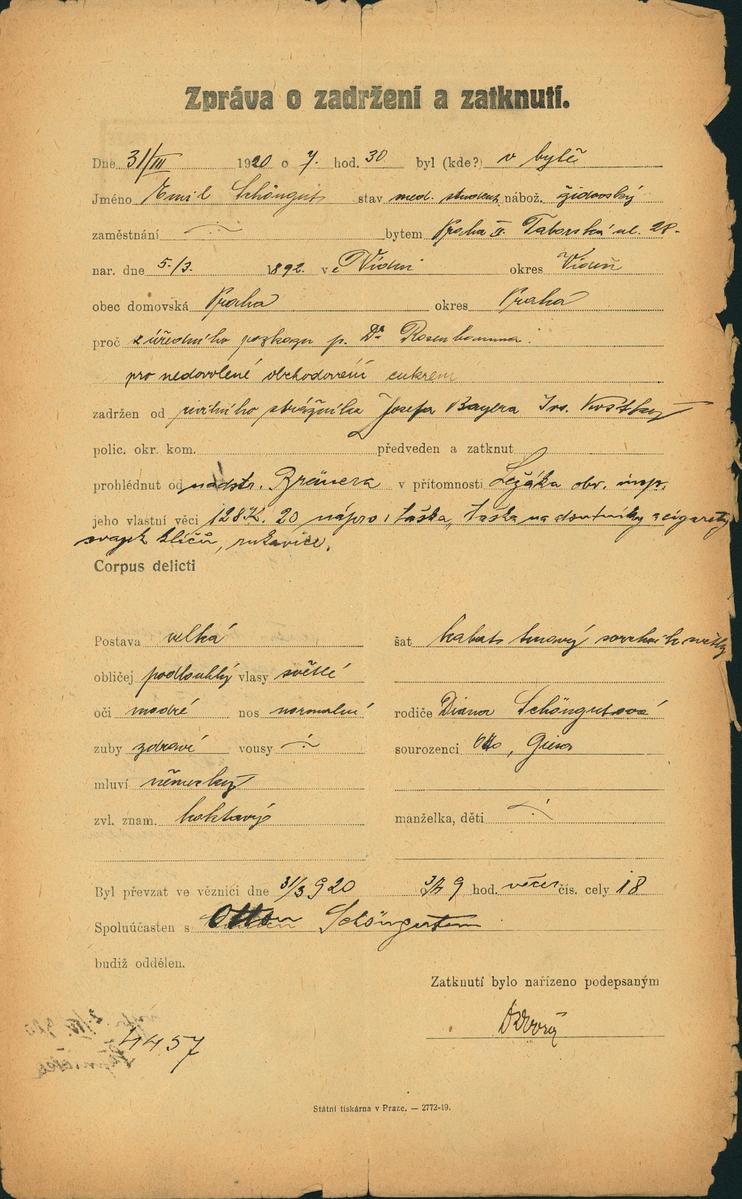 Zpráva o zadržení a zatknutí.
Dne 31/III 1920 o 7. hod. 30 byl (kde?) v bytě
Jméno Emil Schöngut stav med. student nábož. židovský
zaměstnání ·/· bytem Praha II. Táborská ul. 28-
nar. dne 5./3. 1892. ve Vídni okres Vídeň
obec domovská Praha okres Praha
proč z úředního rozkazu p. Dr Rosenbauma.
pro nedovolené obchodování cukrem
zadržen od civilního strážníka Josefa Bayera
polic. okr. kom. předveden a zatknut
prohlédnut od nadstr. Breuera v přítomnosti Ležáka obv. insp.
jeho vlastní věci 128 K. 20 taška, taška na doutníky a cigarety
svazek klíčů, rukavice.
Corpus delicti
Postava velká
šat kabát tmavý svrchník světlý
obličej podlouhlý vlasy světlé
oči modré nos normalní
rodiče Diana Schöngutová
zuby zdravé vousy ·/·
sourozenci Otto, Gisa
mluví německy
zvl. znam. koktavý
manželka, děti ·/·
Byl převzat ve věznici dne 31/3 920 9 hod. večer čís. cely 18
Spoluúčasten s Ottou Schöngutem
budiž oddělen.
Zatknutí bylo nařízeno podepsaným
4457
Státní tiskárna v Praze. — 2772-19.